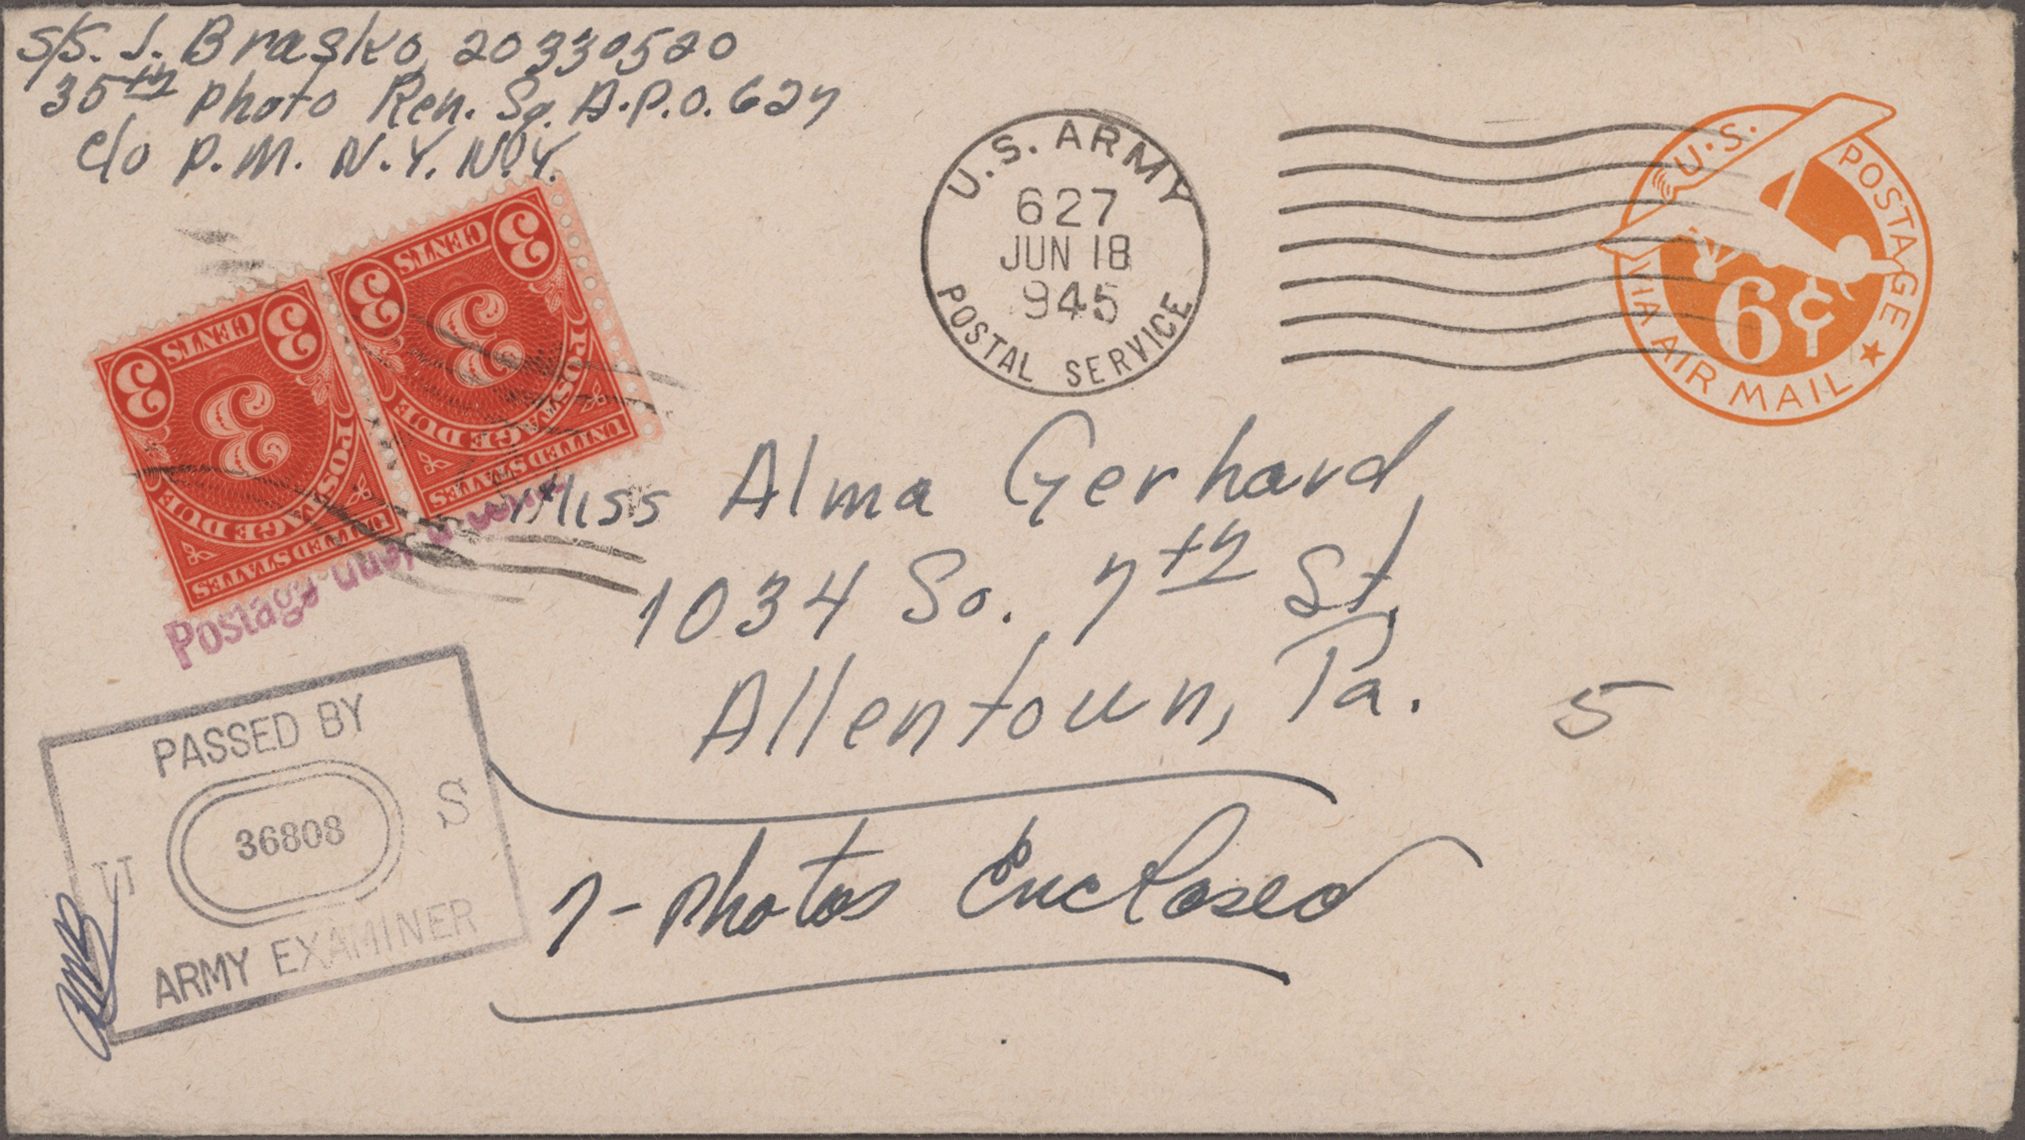 S/S. J. Brasko, 20330520
35th Photo Ren. Sq. A.P.O. 627
c/o P.M. N.Y. N.Y.
U.S. ARMY
627
JUN 18
945
POSTAL SERVICE
U.S. POSTAGE
6¢
VIA AIR MAIL
3 CENTS 3
3
POSTAGE DUE
UNITED STATES
3 CENTS 3
3
POSTAGE DUE
UNITED STATES
Postage due,
Miss Alma Gerhard
1034 So. 7th St.
Allentown, Pa.
5
PASSED BY
U 36808 S
ARMY EXAMINER
7-Photos Enclosed